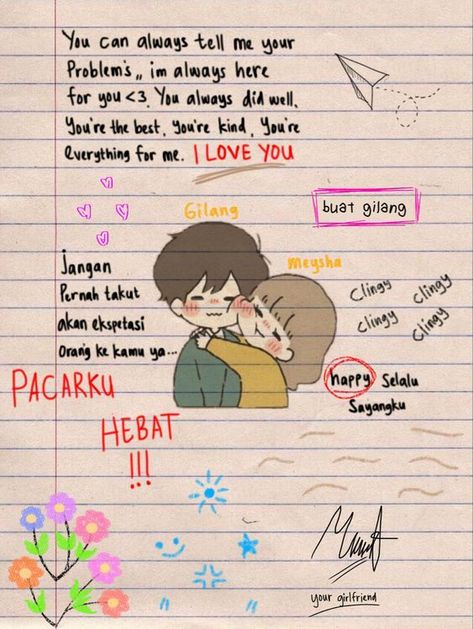 You can always tell me your
Problem's,, im always here
for you <3. You always did well.
You're the best, You're kind, You're
Everything for me. I LOVE YOU
Gilang
buat gilang
Meysha
Jangan
Pernah takut
akan ekspetasi
Orang ke kamu ya...
Clingy
Clingy
Clingy
Clingy
happy Selalu
Sayangku
PACARKU
HEBAT
!!!
your girlfriend